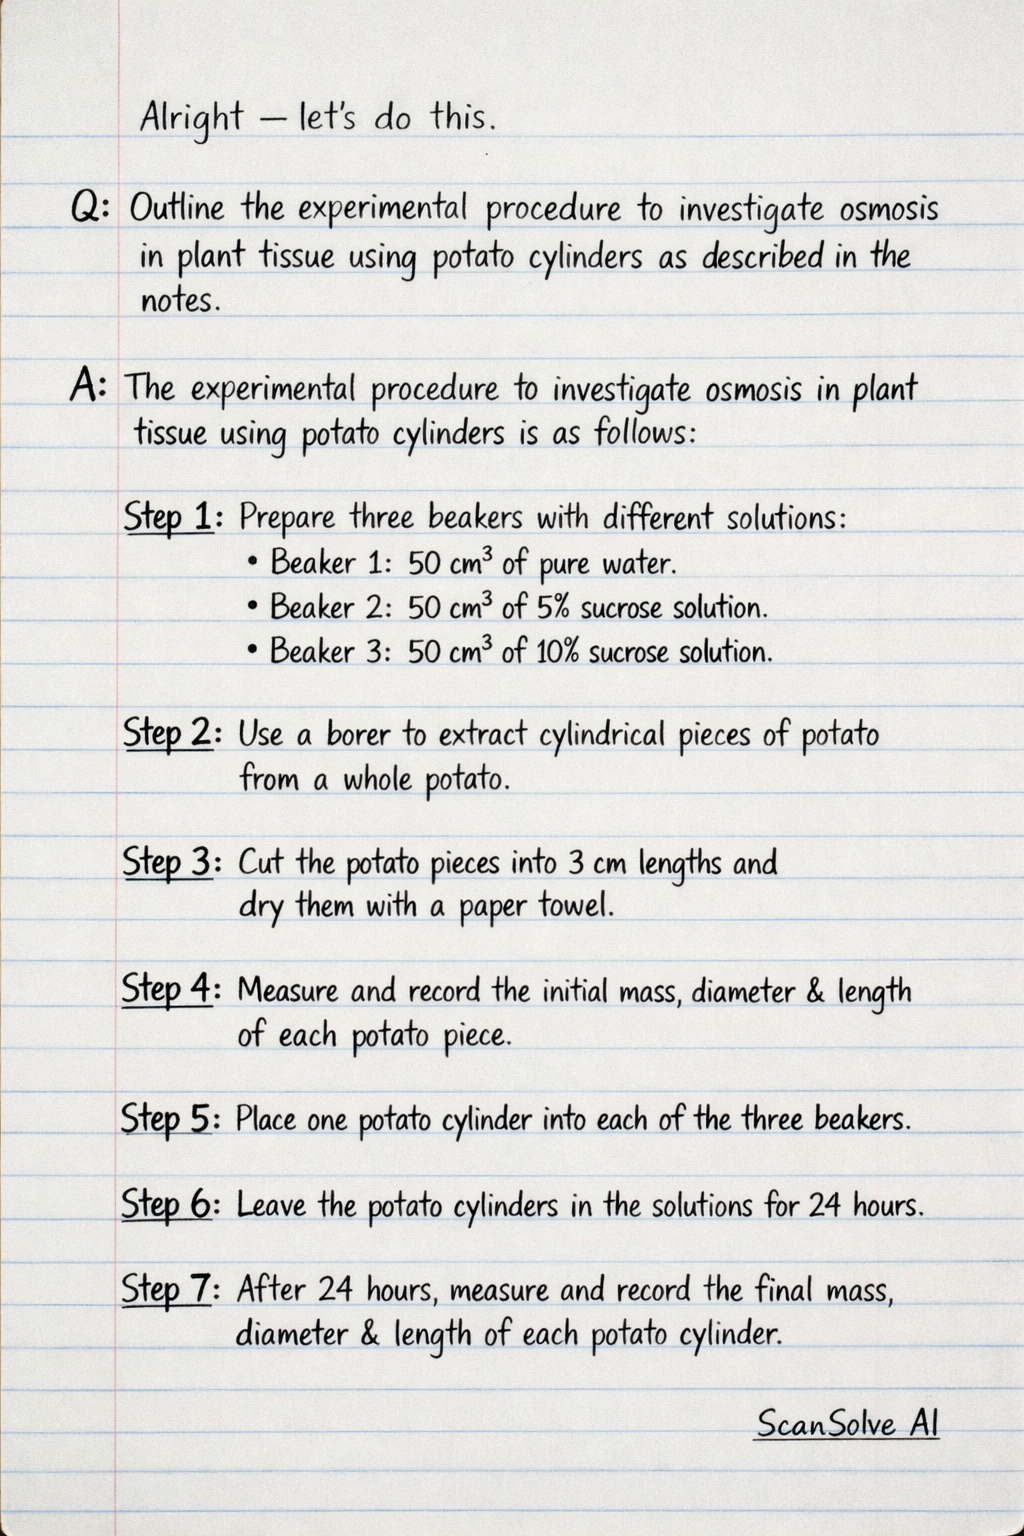 Alright — let's do this.
Q: Outline the experimental procedure to investigate osmosis
in plant tissue using potato cylinders as described in the
notes.
A: The experimental procedure to investigate osmosis in plant
tissue using potato cylinders is as follows:
Step 1: Prepare three beakers with different solutions:
• Beaker 1: 50 cm³ of pure water.
• Beaker 2: 50 cm³ of 5% sucrose solution.
• Beaker 3: 50 cm³ of 10% sucrose solution.
Step 2: Use a borer to extract cylindrical pieces of potato
from a whole potato.
Step 3: Cut the potato pieces into 3 cm lengths and
dry them with a paper towel.
Step 4: Measure and record the initial mass, diameter & length
of each potato piece.
Step 5: Place one potato cylinder into each of the three beakers.
Step 6: Leave the potato cylinders in the solutions for 24 hours.
Step 7: After 24 hours, measure and record the final mass,
diameter & length of each potato cylinder.
ScanSolve AI